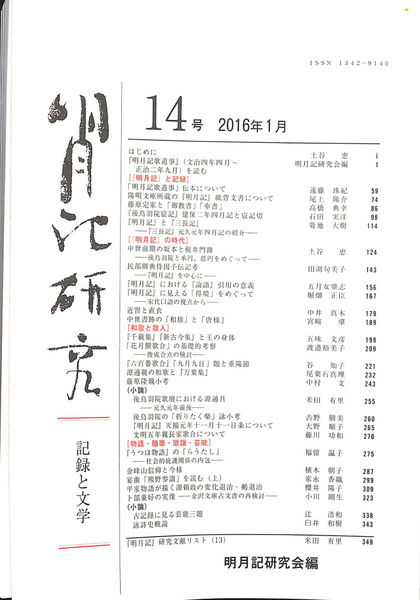 ISSN 1342-9140
明月記研究
記録と文学
14号 2016年1月
はじめに 土谷 恵 i
『明月記歌道事』(文治四年四月~ 明月記研究会編 1
正治二年九月)を読む
[『明月記』と記録]
『明月記歌道事』伝本について 遠藤 珠紀 59
陽明文庫所蔵の『明月記』紙背文書について 尾上 陽介 74
藤原定家と「御教書」「奉書」 高橋 典幸 86
『後鳥羽院宸記』建保二年四月記と宸記切 石田 実洋 98
『明月記』と『三長記』 菊地 大樹 114
――『三長記』元久元年四月記の紹介――
[『明月記』の時代]
中世前期の坂本と梶井門跡 土谷 恵 124
――後鳥羽院と承円、慈円をめぐって――
民部卿典侍因子伝記考 田渕句美子 143
――『明月記』を中心に――
『明月記』における『論語』引用の意義 五月女肇志 156
『明月記』に見える「得境」をめぐって 堀畑 正臣 167
――宋代口語の視点から――
近習と直衣 中井 真木 179
中世書跡の「和様」と「唐様」 宮﨑 肇 189
[和歌と歌人]
『千載集』『新古今集』と王の身体 五味 文彦 199
『花月撰歌合』の基礎的考察 渡邉裕美子 209
――俊成合点の検討――
『六百番歌合』「九月九日」題と重陽節 谷 知子 221
源通親の和歌と『万葉集』 尾葉石真理 232
藤原隆親小考 中村 文 243
(小論)
後鳥羽院歌壇における源通具 米田 有里 255
――元久元年前後――
後鳥羽院の「折りたく柴」詠小考 吉野 朋美 260
『明月記』天福元年十一月十一日条について 大野 順子 265
文明五年親長家歌合について 藤川 功和 270
[物語・随筆・歌謡・芸能]
『うつほ物語』の「らうたし」 福留 温子 275
――社会的庇護関係の内包――
金峰山信仰と今様 植木 朝子 287
宴曲「熊野参詣」を読む(上) 家永 香織 299
平家物語が描く源頼政の変化退治・鵺退治 櫻井 陽子 309
卜部兼好の実像 ――金沢文庫古文書の再検討―― 小川 剛生 323
(小論)
古記録に見る芸能三題 辻 浩和 338
詠詩史概論 臼井 和樹 343
『明月記』研究文献リスト(13) 米田 有里 349
明月記研究会編